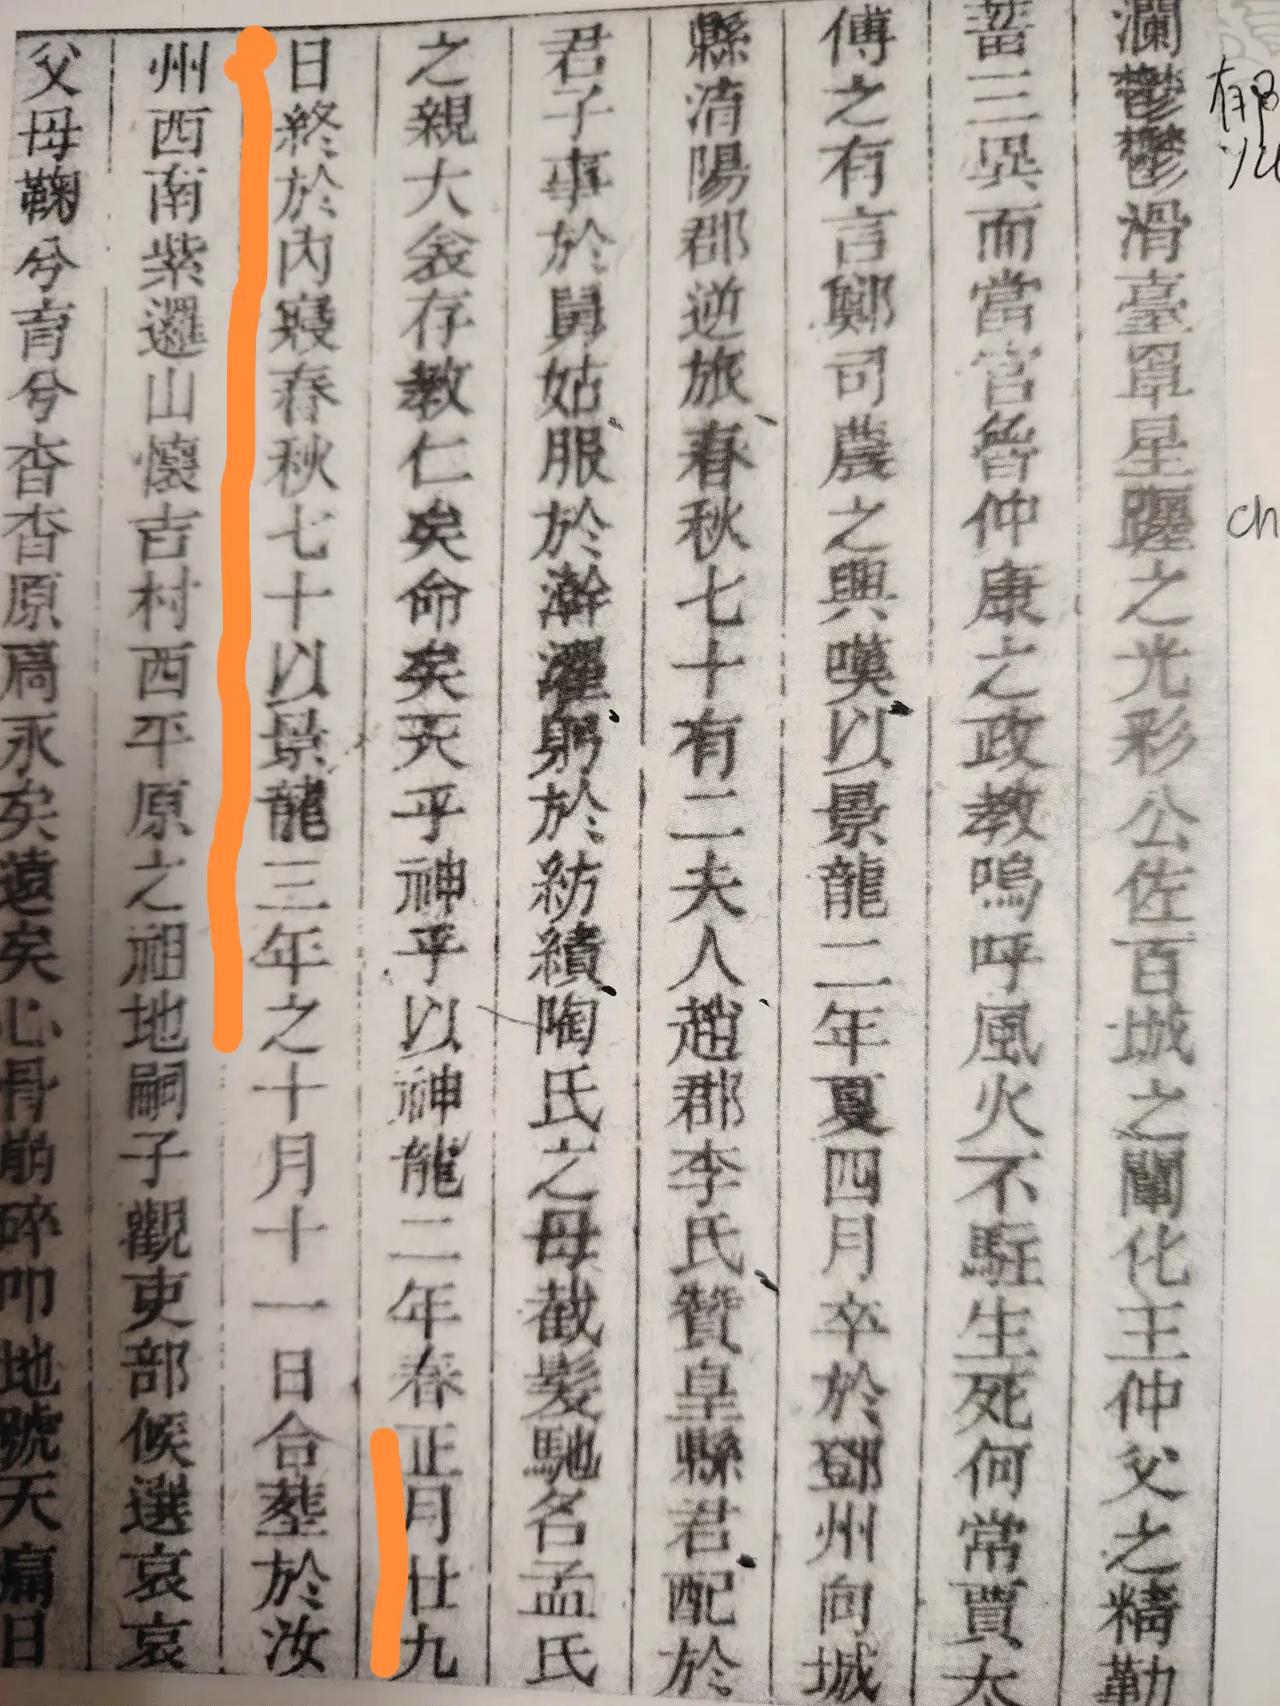 瀾鬱鬱滑臺單星躔之光彩公佐百城之闡化王仲父之精勤
蕃三異而當官皆仲康之政教嗚呼風火不駐生死何常賈太
傅之有言鄭司農之興嘆以景龍二年夏四月卒於鄧州向城
縣淯陽郡逆旅春秋七十有二夫人趙郡李氏贊皇縣君配於
君子事於舅姑服於澣濯躬於紡績陶氏之母截髮馳名孟氏
之親大衾存教仁矣命矣天乎神乎以神龍二年春正月廿九
日終於內寢春秋七十以景龍三年之十月十一日合塟於汝
州西南紫邏山懷吉村西平原之祖地嗣子觀吏部候選哀哀
父母鞠兮育兮杳杳原扃永矣遠矣心骨崩碎叩地號天扁日
郁
ch